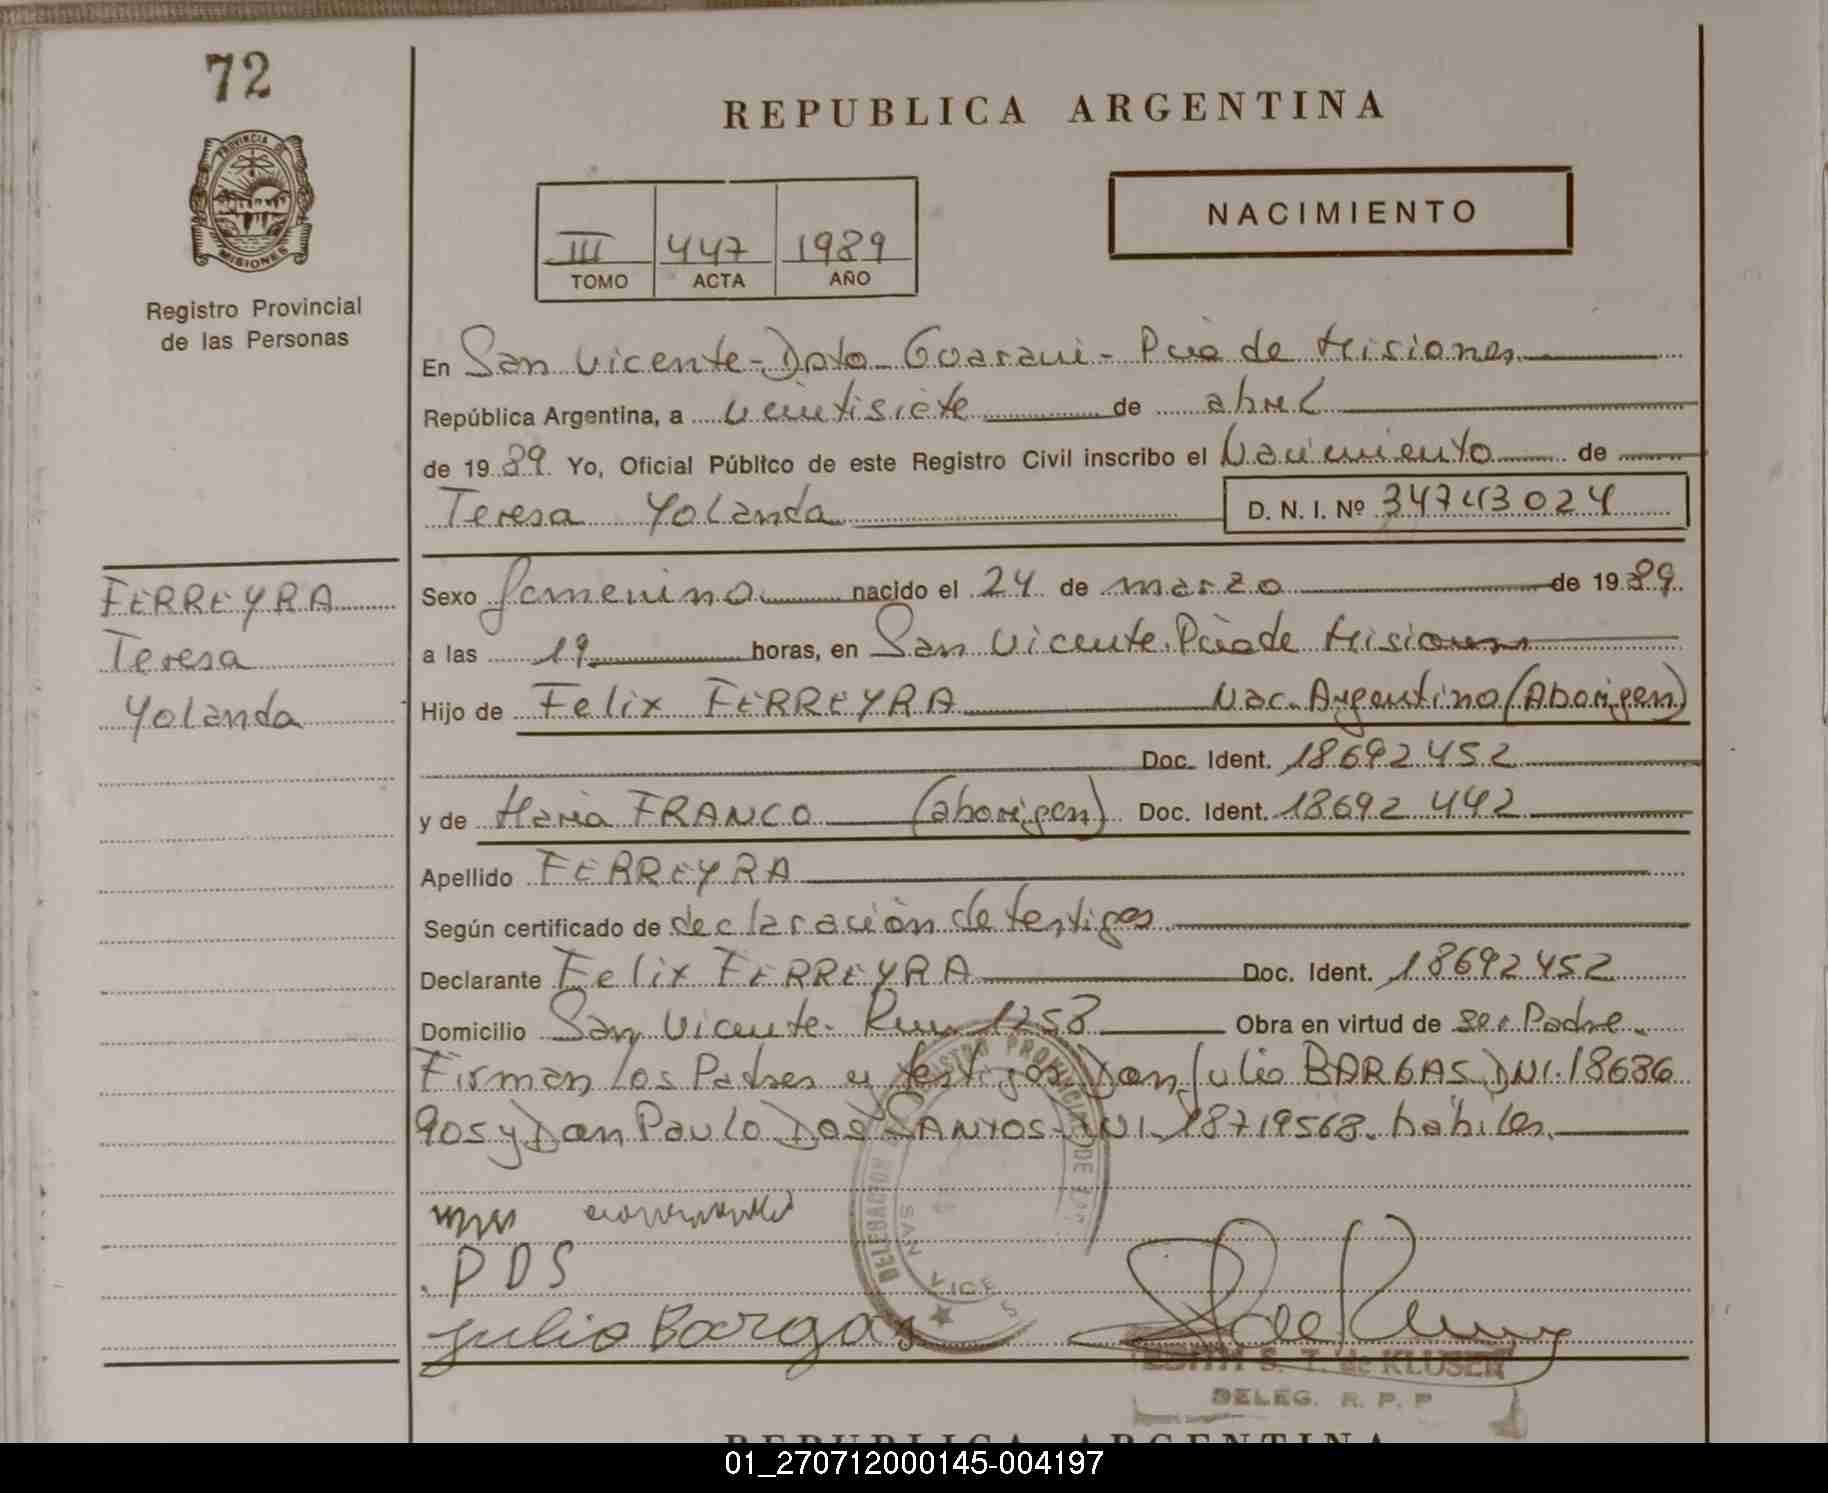 72
REPUBLICA ARGENTINA
PROVINCIA DE
MISIONES
Registro Provincial
de las Personas
NACIMIENTO
III 447 1989
TOMO ACTA AÑO
En San Vicente - Dpto Guarani - Pcia de Misiones
República Argentina, a veintisiete de abril
de 1989. Yo, Oficial Público de este Registro Civil inscribo el Nacimiento de
Teresa Yolanda D. N. I. Nº 34743024
FERREYRA
Teresa
Yolanda
Sexo femenino nacido el 24 de marzo de 1989.
a las 19 horas, en San Vicente. Pcia de Misiones
Hijo de Felix FERREYRA Nac. Argentino (Aborigen)
Doc. Ident. 18692452
y de Maria FRANCO (aborigen) Doc. Ident. 18692442
Apellido FERREYRA
Según certificado de declaración de testigos
Declarante Felix FERREYRA Doc. Ident. 18692452
Domicilio San Vicente. Km 1258 Obra en virtud de ser Padre.
Firman los Padres y testigos Don Julio BARGAS DNI. 18686
905 y Don Paulo Dos SANTOS - DNI. 18719568. habiles.
PDS
Julio Bargas
DELEGACION
SAN VICE
EDITH S. T. de KLUSEN
DELEG. R. P. P
REPUBLICA ARGENTINA
01_270712000145-004197